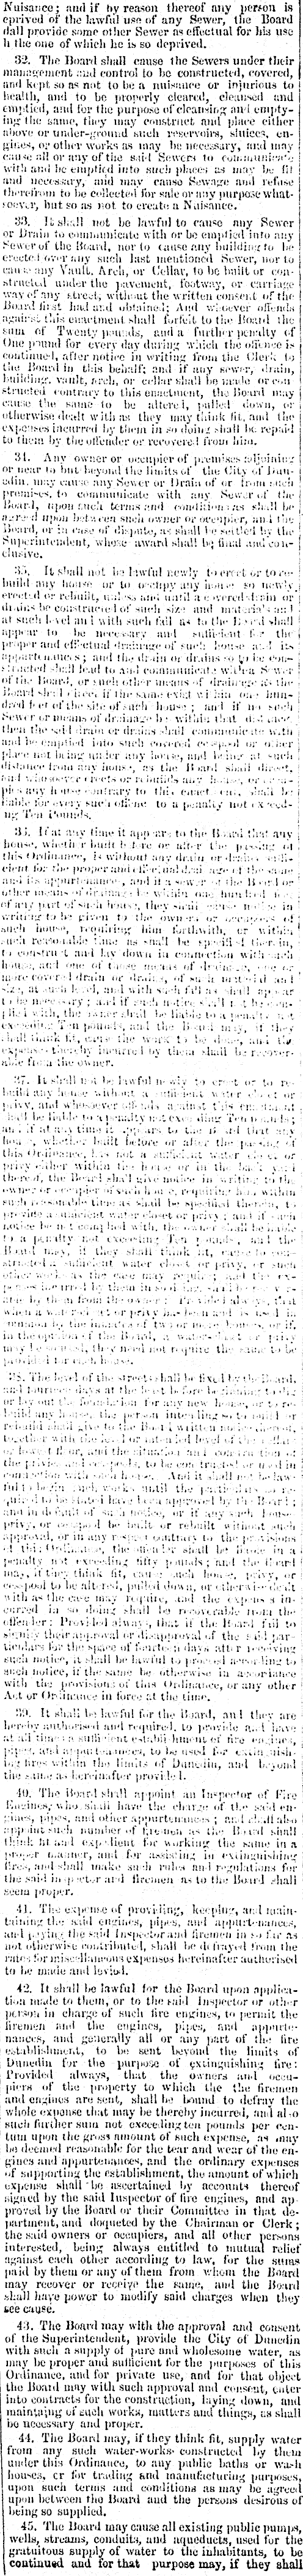 Nuisance; and if by reason thereof any person is
deprived of the lawful use of any Sewer, the Board
shall provide some other Sewer as effectual for his use
h the one of which he is so deprived.
32. The Board shall cause the Sewers under their
management and control to be constructed, covered,
and kept so as not to be a nuisance or injurious to
health, and to be properly cleared, cleansed and
emptied, and for the purpose of cleansing and empty-
ing the same, they may construct and place either
above or under-ground such reservoirs, sluices, en-
gines, or other works as may be necessary, and may
cause all or any of the said Sewers to communicate
with and be emptied into such places as may be fit
and necessary, and may cause Sewage and refuse
therefrom to be collected for sale or any purpose what-
soever, but so as not to create a Nuisance.
33. It shall not be lawful to cause any Sewer
or Drain to communicate with or be emptied into any
Sewer of the Board, nor to cause any building to be
erected over any such last mentioned Sewer, nor to
cause any Vault, Arch, or Cellar, to be built or con-
structed under the pavement, footway, or carriage
way of any street, without the written consent of the
Board first had and obtained; And whoever offends
against this enactment shall forfeit to the Board the
sum of Twenty pounds, and a further penalty of
One pound for every day during which the offence is
continued, after notice in writing from the Clerk to
the Board in this behalf; and if any sewer, drain,
building, vault, arch, or cellar shall be made or con
structed contrary to this enactment, the Board may
cause the same to be altered, pulled down, or
otherwise dealt with as they may think fit, and the
expenses incurred by them in so doing shall be repaid
to them by the offender or recovered from him.
34. Any owner or occupier of premises adjoining
or near to but beyond the limits of the City of Dun-
edin, may cause any Sewer or Drain of or from such
premises, to communicate with any Sewer of the
Board, upon such terms and conditions as shall be
agreed upon between such owner or occupier, and the
Board, or in case of dispute, as shall be settled by the
Superintendent, whose award shall be final and con-
clusive.
35. It shall not be lawful newly to erect or to re-
build any house or to occupy any house so newly
erected or rebuilt, unless and until a covered drain or
drains be constructed of such size and materials and
at such level and with such fall as to the Board shall
appear to be necessary and sufficient for the
proper and effectual drainage of such house and its
appurtenances; and the drain or drains so to be con-
structed shall lead to and communicate with a Sewer
of the Board, or such other means of drainage as the
Board shall direct, if the same exist within one hun-
dred feet of the site of such house; and if no such
Sewer or means of drainage be within that distance,
then the said drain or drains shall communicate with
and be emptied into such covered cesspool or other
place not being under any house, and being at such
distance from any house, as the Board shall direct,
and whosoever erects or rebuilds any house, or occu-
pies any house contrary to this enactment, shall be
liable for every such offence to a penalty not exceed-
ing Ten Pounds.
36. If at any time it appears to the Board that any
house, whether built before or after the passing of
this Ordinance, is without any drain or drains suffi-
cient for the proper and effectual drainage of the same
and its appurtenances, and if a sewer of the Board or
other means of drainage be within one hundred feet
of any part of such house, they shall cause notice in
writing to be given to the owners or occupiers of
such house, requiring him forthwith, or within
such reasonable time as shall be specified therein,
to construct and lay down in connection with such
house, and one of those means of drainage, one or
more covered drain or drains, of such material and
size, at such level, and with such fall as shall appear
to be necessary; and if such notice shall not be com-
plied with, the owner shall be liable to a penalty not
exceeding Ten pounds, and the Board may, if they
shall think fit, cause the work to be done, and the
expenses thereby incurred by them shall be recover-
able from the owner.
37. It shall not be lawful newly to erect or to re-
build any house without a sufficient water closet or
privy, and whosoever offends against this enactment
shall be liable to a penalty not exceeding Ten Pounds;
and if at any time it appears to the Board that any
house, whether built before or after the passing of
this Ordinance, has not a sufficient water closet or
privy either within the house or in the back yard
thereof, the Board shall give notice in writing to the
owner or occupier of such house, requiring him within
such reasonable time as shall be specified therein, to
provide a sufficient water closet or privy; and if such
notice be not complied with, the owner shall be liable
to a penalty not exceeding Ten pounds, and the
Board may, if they shall think fit, cause to be con-
structed a sufficient water closet or privy, or such
other works as the case may require; and the ex-
penses incurred by them in so doing shall be recover-
able by them from the owner: Provided always, that
when a water closet or privy has been and is used in
common by the inmates of two or more houses, or if,
in the opinion of the Board, a water closet or privy
may be so used, they need not require the same to be
provided for each house.
38. The level of the streets shall be fixed by the Board,
and fourteen days at the least before beginning to dig
or lay out the foundation for any new house, or to re-
build any house, the person intending so to build or
rebuild shall give to the Board written notice thereof,
together with the level or intended level of the cellar
or lowest floor, and the situation and construction of
the privies and cesspools, to be constructed or used in
connection with such house. And it shall not be law-
ful to begin such works until the particulars so re-
quired to be stated have been approved by the Board;
and in default of such notice, or if any such house,
privy, or cesspool be built or rebuilt without such
approval, or in any respect contrary to the provisions
of this Ordinance, the offender shall be liable to a
penalty not exceeding fifty pounds; and the Board
may, if they think fit, cause such house, privy, or
cesspool to be altered, pulled down, or otherwise dealt
with as the case may require, and the expenses in-
curred in so doing shall be recoverable from the
offender: Provided always, that if the Board fail to
signify their approval or disapproval of the said par-
ticulars for the space of fourteen days after receiving
such notice, it shall be lawful to proceed according to
such notice, if the same be otherwise in accordance
with the provisions of this Ordinance, or any other
Act or Ordinance in force at the time.
39. It shall be lawful for the Board, and they are
hereby authorised and required, to provide and have
at all times a sufficient establishment of fire engines,
pipes, and appurtenances, to be used for extinguish-
ing fires within the limits of Dunedin, and beyond
the same as hereinafter provided.
40. The Board shall appoint an Inspector of Fire
Engines, who shall have the charge of the said en-
gines, pipes, and other appurtenances; and shall also
appoint such number of firemen as the Board shall
think fit and expedient for working the same in a
proper manner, and for assisting in extinguishing
fires, and shall make such rules and regulations for
the said inspector and firemen as to the Board shall
seem proper.
41. The expense of providing, keeping, and main-
taining the said engines, pipes, and appurtenances,
and paying the said Inspector and firemen in so far as
not otherwise contributed, shall be defrayed from the
rates for miscellaneous expenses hereinafter authorised
to be made and levied.
42. It shall be lawful for the Board upon applica-
tion made to them, or to the said Inspector or other
person in charge of such fire engines, to permit the
firemen and the engines, pipes, and appurte-
nances, and generally all or any part of the fire
establishment, to be sent beyond the limits of
Dunedin for the purpose of extinguishing fire:
Provided always, that the owners and occu-
piers of the property to which the the firemen
and engines are sent, shall be bound to defray the
whole expense that may be thereby incurred, and also
such further sum not exceeding ten pounds per cen-
tum upon the gross amount of such expense, as may
be deemed reasonable for the tear and wear of the en-
gines and appurtenances, and the ordinary expenses
of supporting the establishment, the amount of which
expense shall be ascertained by accounts thereof
signed by the said Inspector of fire engines, and ap-
proved by the Board or their Committee in that de-
partment, and docqueted by the Chairman or Clerk;
the said owners or occupiers, and all other persons
interested, being always entitled to mutual relief
against each other according to law, for the sums
paid by them or any of them from whom the Board
may recover or receive the same, and the Board
shall have power to modify said charges when they
see cause.
43. The Board may with the approval and consent
of the Superintendent, provide the City of Dunedin
with such a supply of pure and wholesome water, as
may be proper and sufficient for the purposes of this
Ordinance, and for private use, and for that object
the Board may with such approval and consent, enter
into contracts for the construction, laying down, and
maintaing of such works, matters and things, as shall
be necessary and proper.
44. The Board may, if they think fit, supply water
from any such water-works constructed by them
under this Ordinance, to any public baths or wash
houses, or for trading and manufacturing purposes,
upon such terms and conditions as may be agreed
upon between the Board and the persons desirous of
being so supplied.
45. The Board may cause all existing public pumps,
wells, streams, conduits, and aqueducts, used for the
gratuitous supply of water to the inhabitants, to be
continued and for that purpose may, if they shall